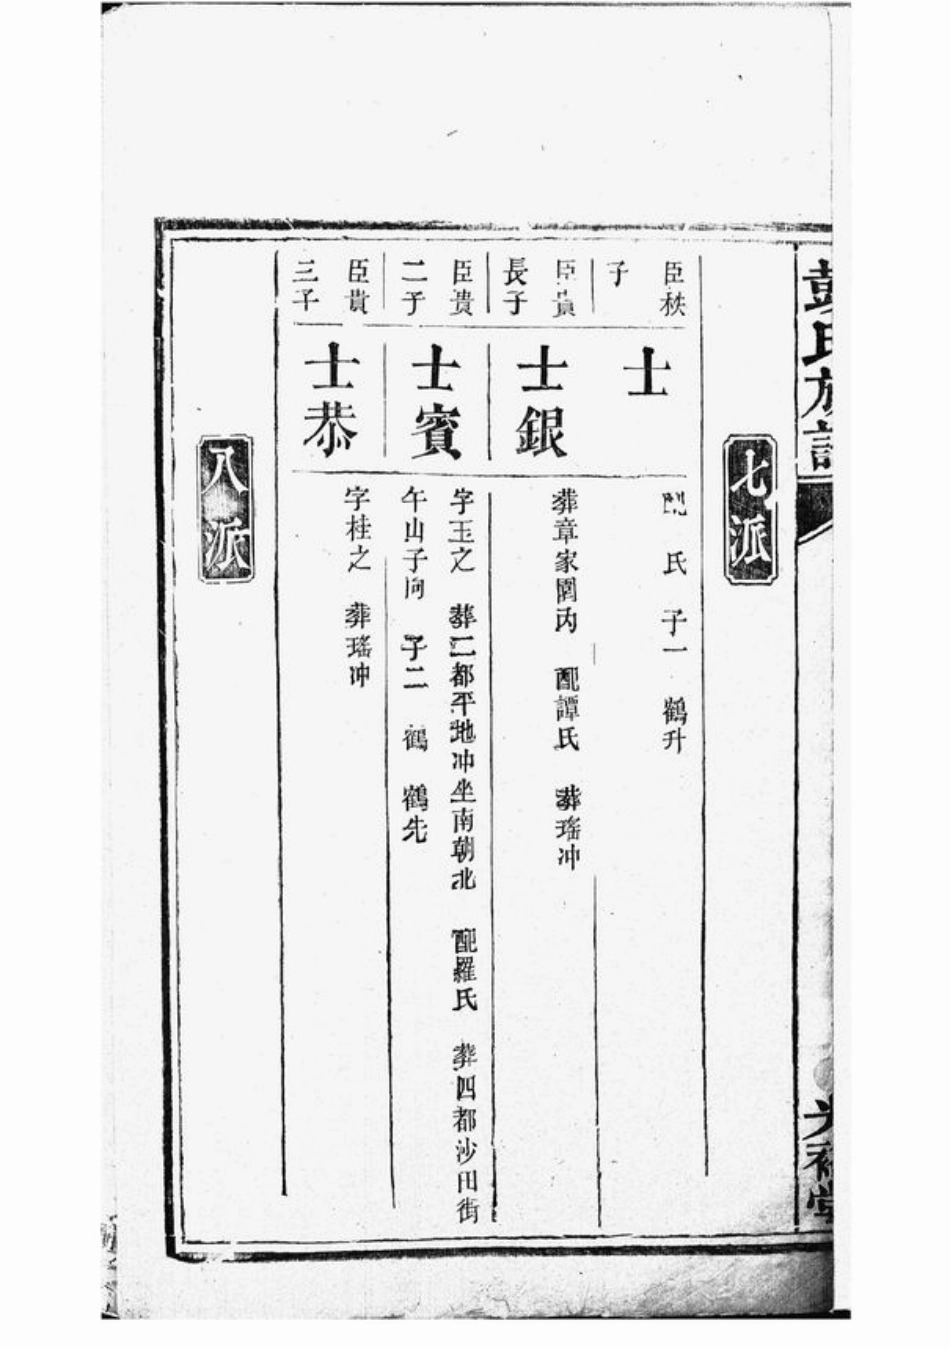 彭氏族譜
七派
臣秩
子
士
配 氏 子一 鶴升
臣貴
長子
士銀
葬章家園內 配譚氏 葬瑤冲
臣貴
二子
士賓
字玉之 葬二都平地冲坐南朝北 配羅氏 葬四都沙田街
午山子向 子二 鶴 鶴先
臣貴
三子
士恭
字桂之 葬瑤冲
八派
光裕堂